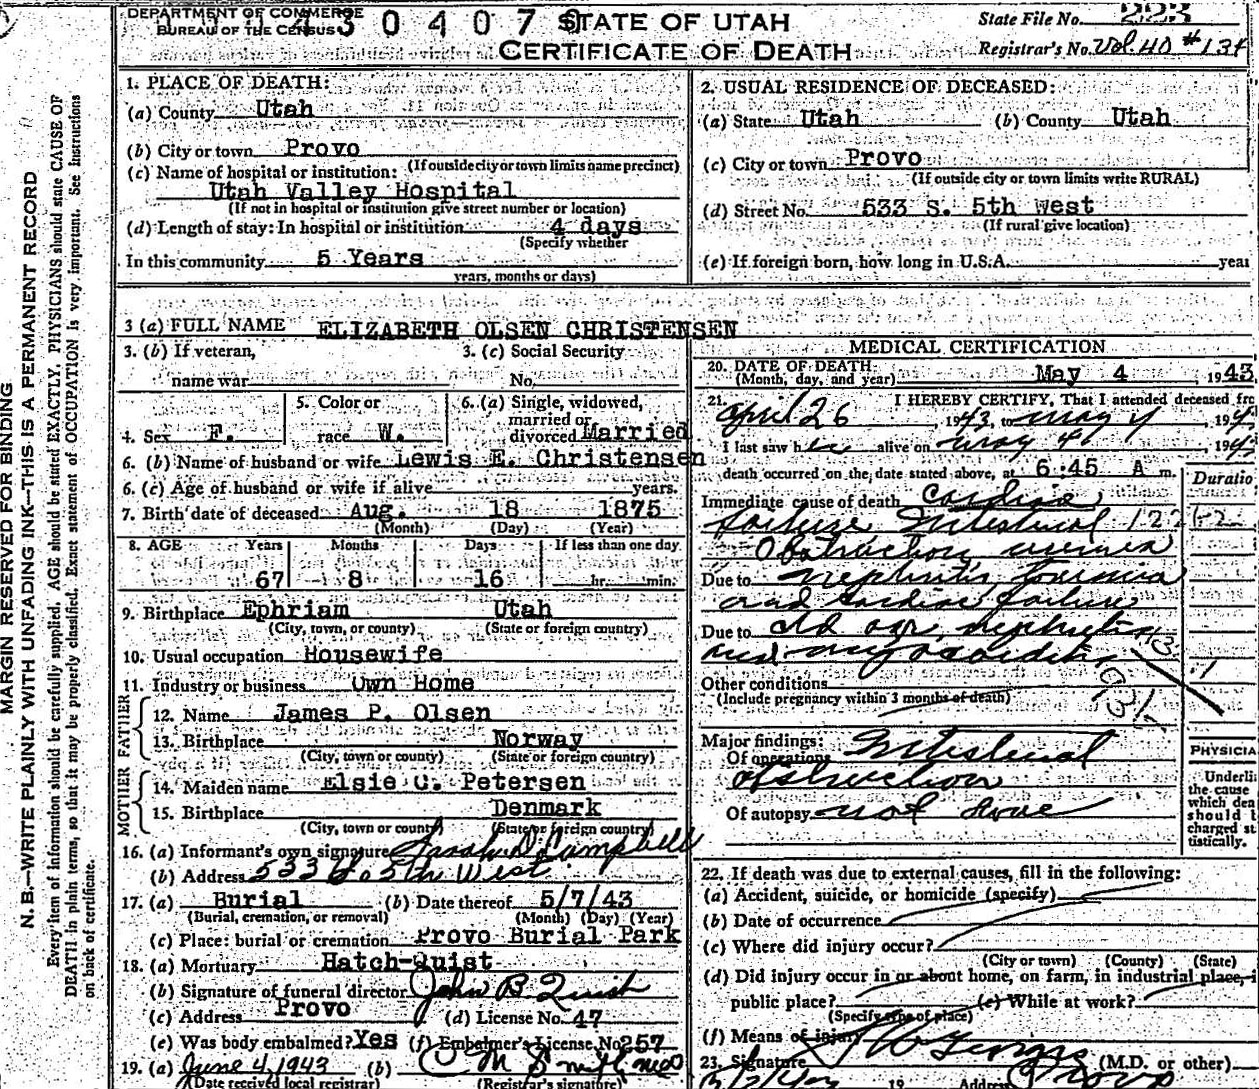 DEPARTMENT OF COMMERCE
BUREAU OF THE CENSUS
3 0 4 0 7
STATE OF UTAH
CERTIFICATE OF DEATH
State File No. 223
Registrar's No. Vol. 40 #134
MARGIN RESERVED FOR BINDING
N. B.—WRITE PLAINLY WITH UNFADING INK—THIS IS A PERMANENT RECORD
Every item of information should be carefully supplied. AGE should be stated EXACTLY. PHYSICIANS should state CAUSE OF
DEATH in plain terms, so that it may be properly classified. Exact statement of OCCUPATION is very important. See instructions
on back of certificate.
1. PLACE OF DEATH:
(a) County Utah
(b) City or town Provo
(If outside city or town limits name precinct)
(c) Name of hospital or institution:
Utah Valley Hospital
(If not in hospital or institution give street number or location)
(d) Length of stay: In hospital or institution 4 days
(Specify whether
In this community 5 Years
years, months or days)
2. USUAL RESIDENCE OF DECEASED:
(a) State Utah (b) County Utah
(c) City or town Provo
(If outside city or town limits write RURAL)
(d) Street No. 533 S. 5th West
(If rural give location)
(e) If foreign born, how long in U.S.A. year
3 (a) FULL NAME ELIZABETH OLSEN CHRISTENSEN
3. (b) If veteran,
name war
3. (c) Social Security
No.
4. Sex F.
5. Color or
race W.
6. (a) Single, widowed,
married or
divorced Married
6. (b) Name of husband or wife Lewis E. Christensen
6. (c) Age of husband or wife if alive years.
7. Birth date of deceased Aug. 18 1875
(Month) (Day) (Year)
8. AGE Years Months Days If less than one day
67 8 16 hr. min.
9. Birthplace Ephriam Utah
(City, town, or county) (State or foreign country)
10. Usual occupation Housewife
11. Industry or business Own Home
FATHER
12. Name James P. Olsen
13. Birthplace Norway
(City, town, or county) (State or foreign country)
MOTHER
14. Maiden name Elsie C. Petersen
15. Birthplace Denmark
(City, town or county) (State or foreign country)
16. (a) Informant's own signature Campbell
(b) Address 533 So. 5th West
17. (a) Burial (b) Date thereof 5/7/43
(Burial, cremation, or removal) (Month) (Day) (Year)
(c) Place: burial or cremation Provo Burial Park
18. (a) Mortuary Hatch-Quist
(b) Signature of funeral director John B Quist
(c) Address Provo (d) License No. 47
(e) Was body embalmed? Yes (f) Embalmer's License No 257
19. (a) June 4, 1943 (b) C M Smith
(Date received local registrar) (Registrar's signature)
MEDICAL CERTIFICATION
20. DATE OF DEATH
(Month, day, and year) May 4, 1943
21. I HEREBY CERTIFY, That I attended deceased
April 26, 1943, to May 4, 194
I last saw her alive on May 4 194
death occurred on the date stated above, at 6:45 A m.
Duratio
Immediate cause of death Cardiac
failure Intestinal 122
Obstruction, uremia
Due to nephritis,
and cardiac failure
Due to old age, nephritis
and myocarditis
Other conditions
(Include pregnancy within 3 months of death)
Major findings:
Of operations Intestinal
obstruction
Of autopsy not done
PHYSICIA
Underli
the cause
which dea
should
charged st
tistically.
22. If death was due to external causes, fill in the following:
(a) Accident, suicide, or homicide (specify)
(b) Date of occurrence
(c) Where did injury occur?
(City or town) (County) (State)
(d) Did injury occur in or about home, on farm, in industrial place,
public place? (e) While at work?
(Specify type of place)
(f) Means of injury
23. Signature (M.D. or other)
19 Address